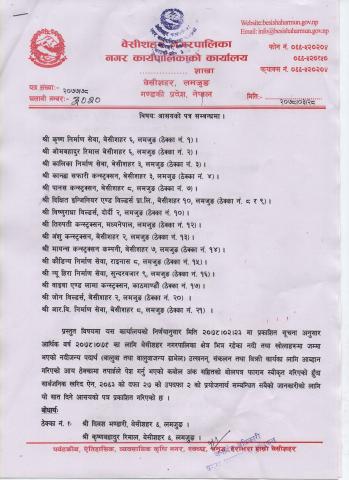 Website:besishaharmun.gov.np
Email: info@besishaharmun.gov.np
बेसीशहर नगरपालिका
नगर कार्यपालिकाको कार्यालय
शाखा
बेसीशहर, लमजुङ
गण्डकी प्रदेश, नेपाल
फोन नं. ०६६-५२०२०५
०६६-५२०२५०
फ्याक्स नं. ०६६-५२०२०५
पत्र संख्या:- २०७७/७८
चलानी नम्बर:- 
मिति:- २०७८/०३/२८
विषय: आसयको पत्र सम्बन्धमा ।
श्री कृष्ण निर्माण सेवा, बेसीशहर ६, लमजुङ (ठेक्का नं. १)।
श्री ओमबहादुर रिमाल बेसीशहर ६, लमजुङ (ठेक्का नं. २)।
श्री कालिका निर्माण सेवा, बेसीशहर ३, लमजुङ (ठेक्का नं. ३)।
श्री कान्छा सफारी कन्स्ट्रक्सन, बेसीशहर ३, लमजुङ (ठेक्का नं. ४)।
श्री पानस कन्स्ट्रक्सन, बेसीशहर ८, लमजुङ (ठेक्का नं. ७)।
श्री दिक्षित इन्जिनियर एण्ड विल्डर्स प्रा.लि., बेसीशहर १०, लमजुङ (ठेक्का नं. ८ र ९)।
श्री विष्णुराधा विल्डर्स, दोर्दी २, लमजुङ (ठेक्का नं. १०)।
श्री तिरुपती कन्स्ट्रक्सन, मध्यनेपाल, लमजुङ (ठेक्का नं. १२)।
श्री अंशु कन्स्ट्रक्सन, बेसीशहर २, लमजुङ (ठेक्का नं. १३)।
श्री मायन्स कन्स्ट्रक्सन कम्पनी, बेसीशहर ७, लमजुङ (ठेक्का नं. १४)।
श्री कौडिन्य निर्माण सेवा, राइनास ८, लमजुङ (ठेक्का नं. १५)।
श्री न्यू हिरा निर्माण सेवा, सुन्दरबजार ९, लमजुङ (ठेक्का नं. १६)।
श्री वाइवा एण्ड लामा कन्स्ट्रक्सन, काठमाण्डौं (ठेक्का नं. १७)।
श्री जोन विल्डर्स, बेसीशहर २, लमजुङ (ठेक्का नं. २०) ।
श्री आर.वि. निर्माण सेवा, बेसीशहर ८, लमजुङ (ठेक्का नं. २१) ।
प्रस्तुत विषयमा यस कार्यालयको निर्णयानुसार मिति २०७८।०२।२२ मा प्रकाशित सूचना अनुसार
आर्थिक वर्ष २०७८।०७९ का लागि बेसीशहर नगरपालिका क्षेत्र भित्र रहेका नदी तथा खोलाहरुमा जम्मा
भएको नदीजन्य पदार्थ (बालुवा तथा बालुवाजन्य ग्राभेल) उत्खनन्, संकलन तथा बिक्री कार्यका लागि आव्हान
गरिएको आय ठेक्कामा तपाईले पेश गर्नु भएको कबोल अंक सहितको बोलपत्र फाराम स्वीकृत गरिएको हुँदा
सार्वजनिक खरिद ऐन, २०६३ को दफा २७ को उपदफा २ को प्रयोजनार्थ सम्बन्धित सबैको जानकारीको लागि
यो सात दिने आसयको पत्र प्रकाशित गरिएको छ ।
बोधार्थ:
ठेक्का नं. १ श्री दिलस भण्डारी, बेसीशहर ६, लमजुङ ।
श्री कृष्णबहादुर रिमाल, बेसीशहर ६, लमजुङ ।